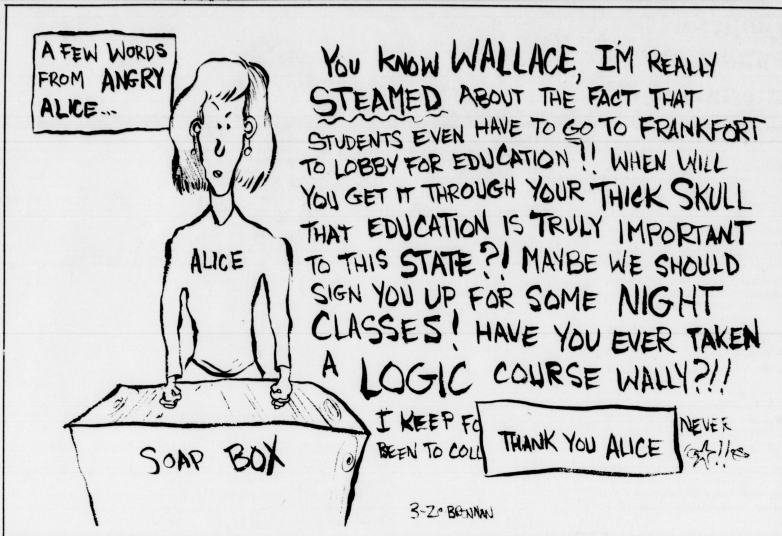 A FEW WORDS
FROM ANGRY
ALICE...
YOU KNOW WALLACE, I'M REALLY
STEAMED ABOUT THE FACT THAT
STUDENTS EVEN HAVE TO GO TO FRANKFORT
TO LOBBY FOR EDUCATION!! WHEN WILL
YOU GET IT THROUGH YOUR THICK SKULL
THAT EDUCATION IS TRULY IMPORTANT
TO THIS STATE?! MAYBE WE SHOULD
SIGN YOU UP FOR SOME NIGHT
CLASSES! HAVE YOU EVER TAKEN
A LOGIC COURSE WALLY?!!
I KEEP FO
NEVER
BEEN TO COLL
THANK YOU ALICE
ALICE
SOAP BOX
BRENNAN